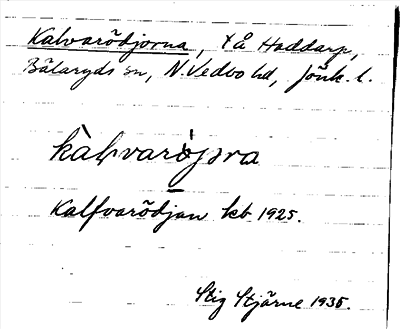 Kalvarödjorna, Yå Haddarp,
Bälaryds sn, N. Vedbo hd, Jönk. l.
kàlvarö̀jora
Kalfvarödjan kb 1925.
Stig Stjärne 1935.